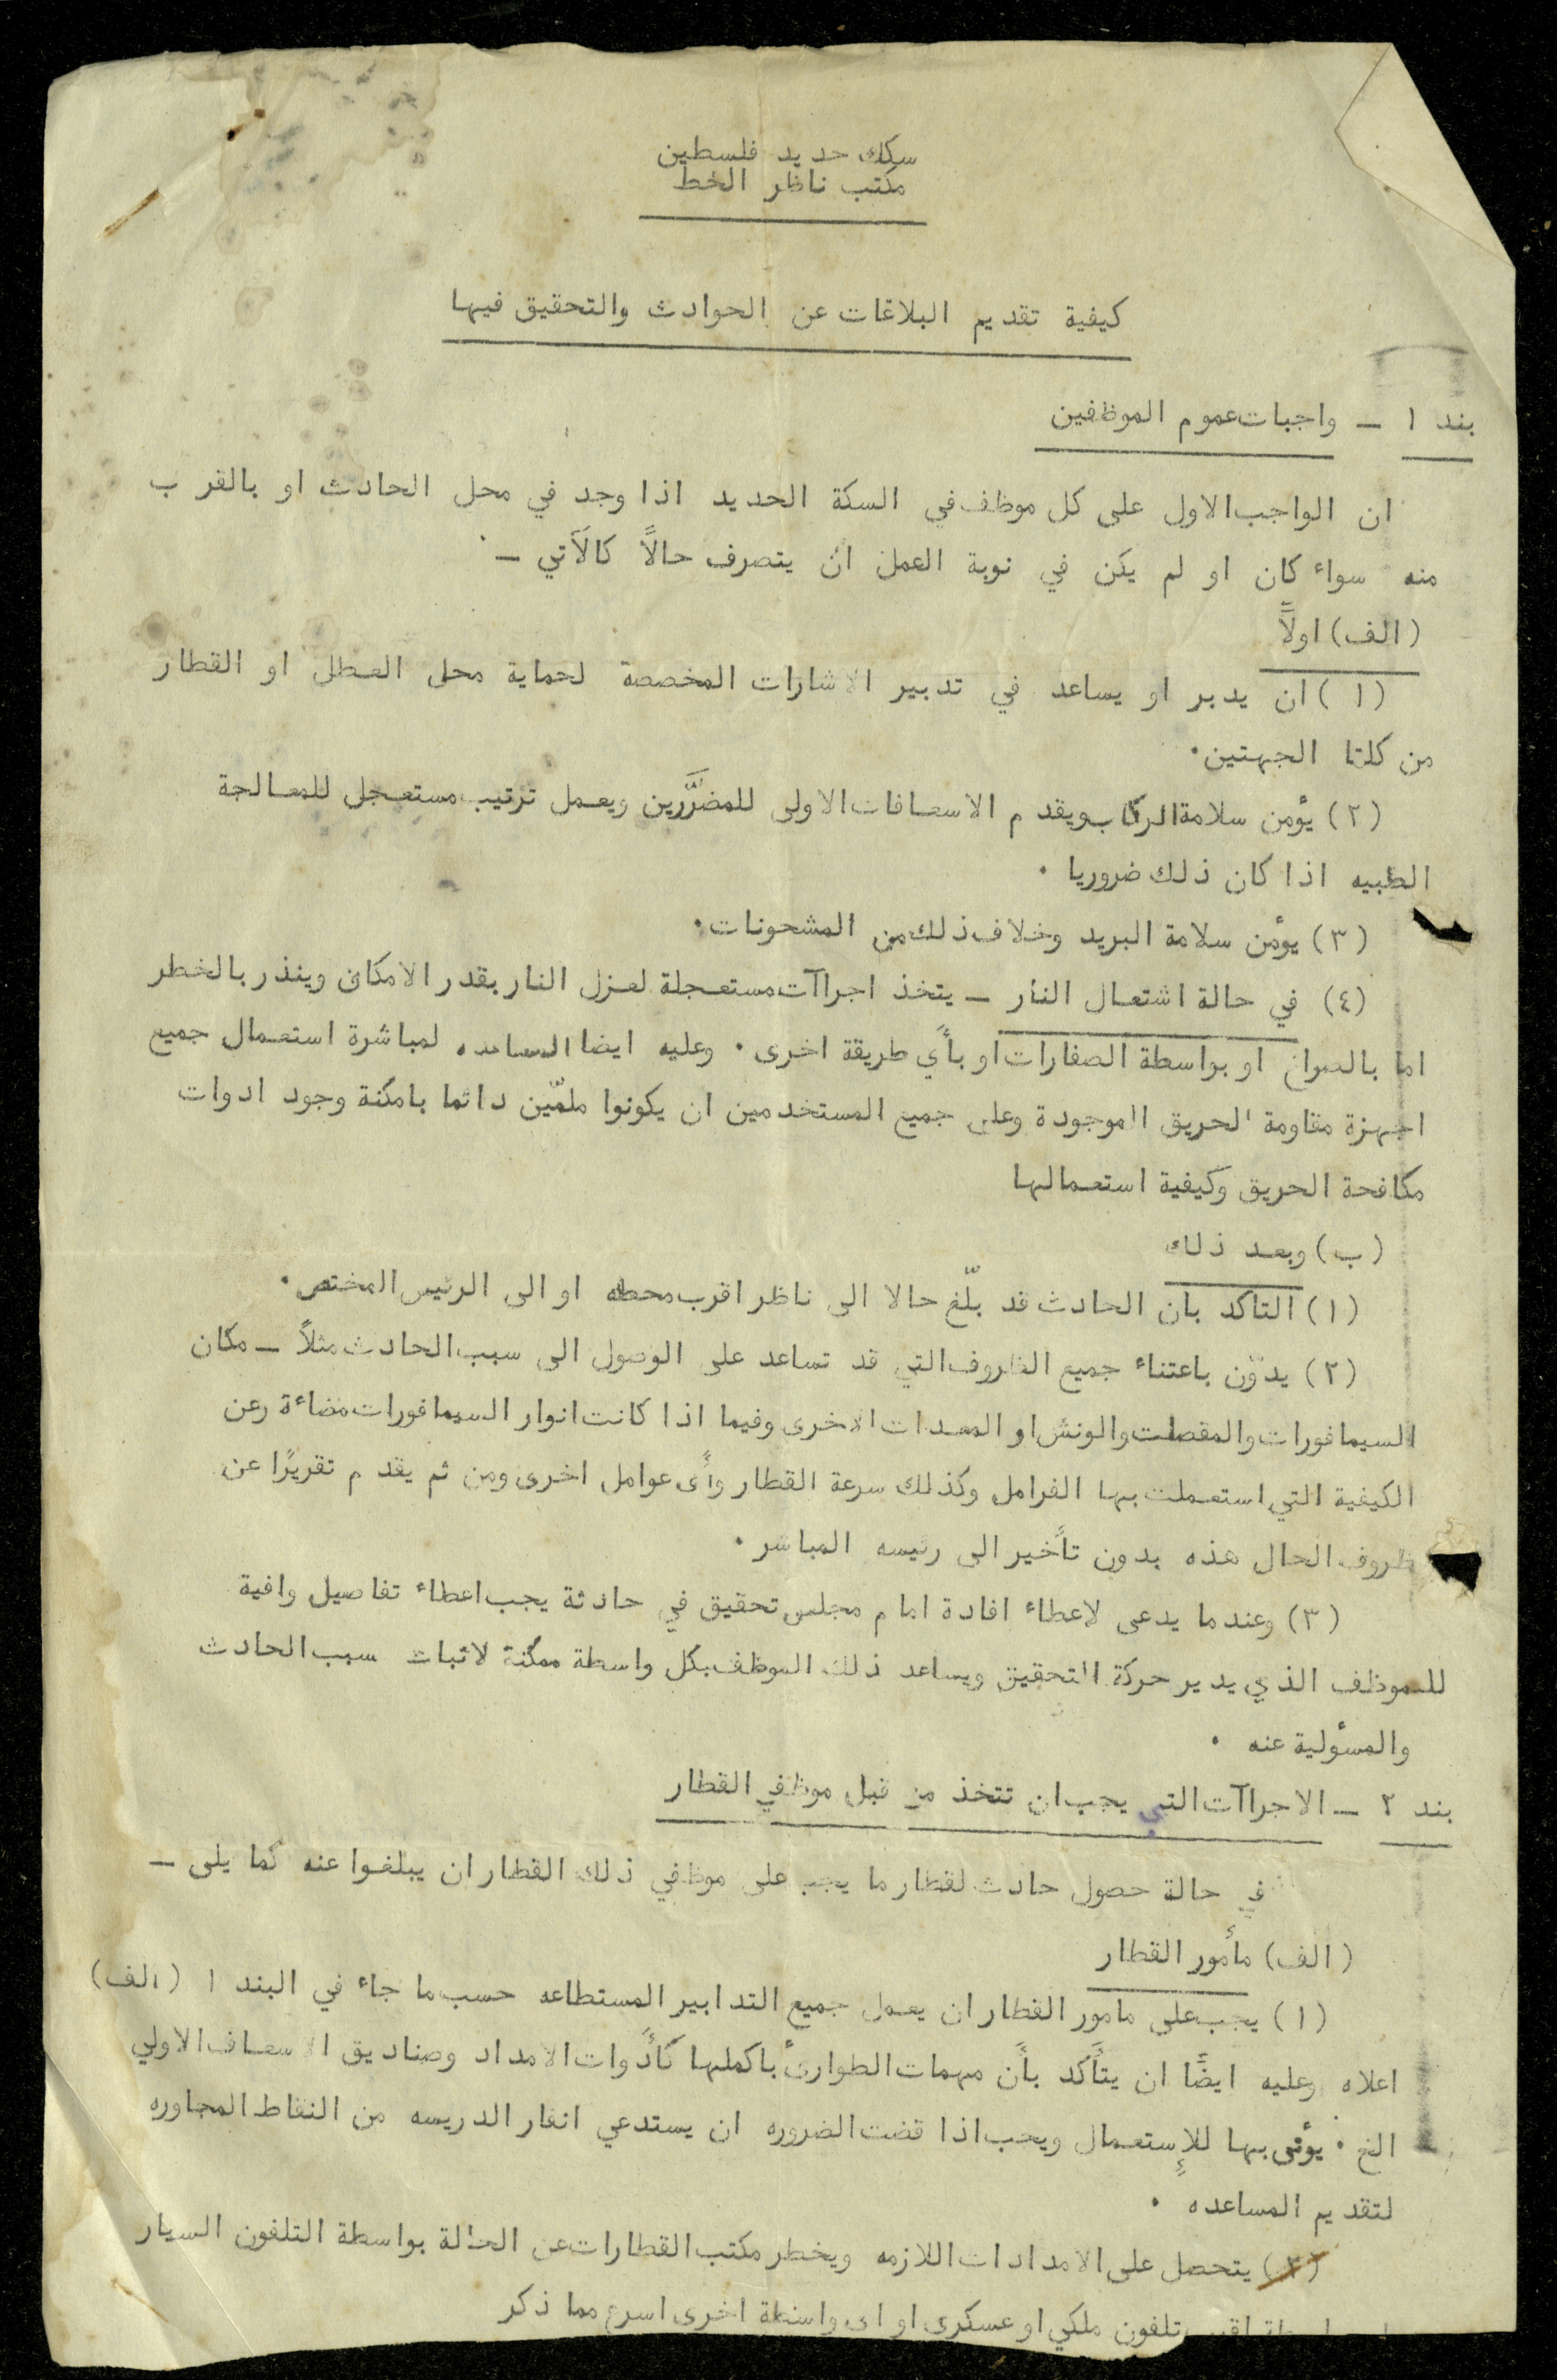 سكك حديد فلسطين
مكتب ناظر الخط
كيفية تقديم البلاغات عن الحوادث والتحقيق فيها
بند ١ – واجبات عموم الموظفين
ان الواجب الاول على كل موظف في السكة الحديد اذا وجد في محل الحادث او بالقرب
منه سواء كان او لم يكن في نوبة العمل ان يتصرف حالاً كالآتي –
(الف) اولاً
(١) ان يدبر او يساعد في تدبير الاشارات المخصصة لحماية محل العطل او القطار
من كلتا الجهتين.
(٢) يؤمن سلامة الركاب ويقدم الاسعافات الاولى للمضرَّرين ويعمل ترتيب مستعجل للمعالجة
الطبيه اذا كان ذلك ضروريا .
(٣) يؤمن سلامة البريد وخلاف ذلك من المشحونات.
(٤) في حالة اشتعال النار – يتخذ اجراآت مستعجلة لعزل النار بقدر الامكان وينذر بالخطر
اما بالصراخ او بواسطة الصفارات او بأي طريقة اخرى . وعليه ايضا المساعده لمباشرة استعمال جميع
اجهزة مقاومة الحريق الموجودة وعلى جميع المستخدمين ان يكونوا ملمّين دائما بامكنة وجود ادوات
مكافحة الحريق وكيفية استعمالها
(ب) وبعد ذلك
(١) التاكد بان الحادث قد بلّغ حالا الى ناظر اقرب محطه او الى الرئيس المختص.
(٢) يدوّن باعتناء جميع الظروف التي قد تساعد على الوصول الى سبب الحادث مثلاً – مكان
السيمافورات والمقصات والونش او المعدات الاخرى وفيما اذا كانت انوار السيمافورات مضاءة وعن
الكيفية التي استعملت بها الفرامل وكذلك سرعة القطار وأى عوامل اخرى ومن ثم يقدم تقريرًا عن
ظروف الحال هذه بدون تأخير الى رئيسه المباشر .
(٣) وعندما يدعى لاعطاء افادة امام مجلس تحقيق في حادثة يجب اعطاء تفاصيل وافية
للموظف الذي يدير حركة التحقيق ويساعد ذلك الموظف بكل واسطة ممكنة لاثبات سبب الحادث
والمسؤلية عنه .
بند ٢ – الاجراآت التي يجب ان تتخذ من قبل موظفي القطار
في حالة حصول حادث لقطار ما يجب على موظفي ذلك القطار ان يبلغوا عنه كما يلى –
(الف) مأمور القطار
(١) يجب على مامور القطار ان يعمل جميع التدابير المستطاعه حسب ما جاء في البند ١ (الف)
اعلاه وعليه ايضًا ان يتأكد بأن مهمات الطوارئ باكملها كأدوات الامداد وصناديق الاسعاف الاولي
الخ . يؤتى بها للإستعمال ويجب اذا قضت الضروره ان يستدعي انفار الدريسه من النقاط المجاوره
لتقديم المساعده .
(٢) يتحصل على الامدادات اللازمه ويخطر مكتب القطارات عن الحالة بواسطة التلفون السيار
تلفون ملكي او عسكرى او اى واسطة اخرى اسرع مما ذكر